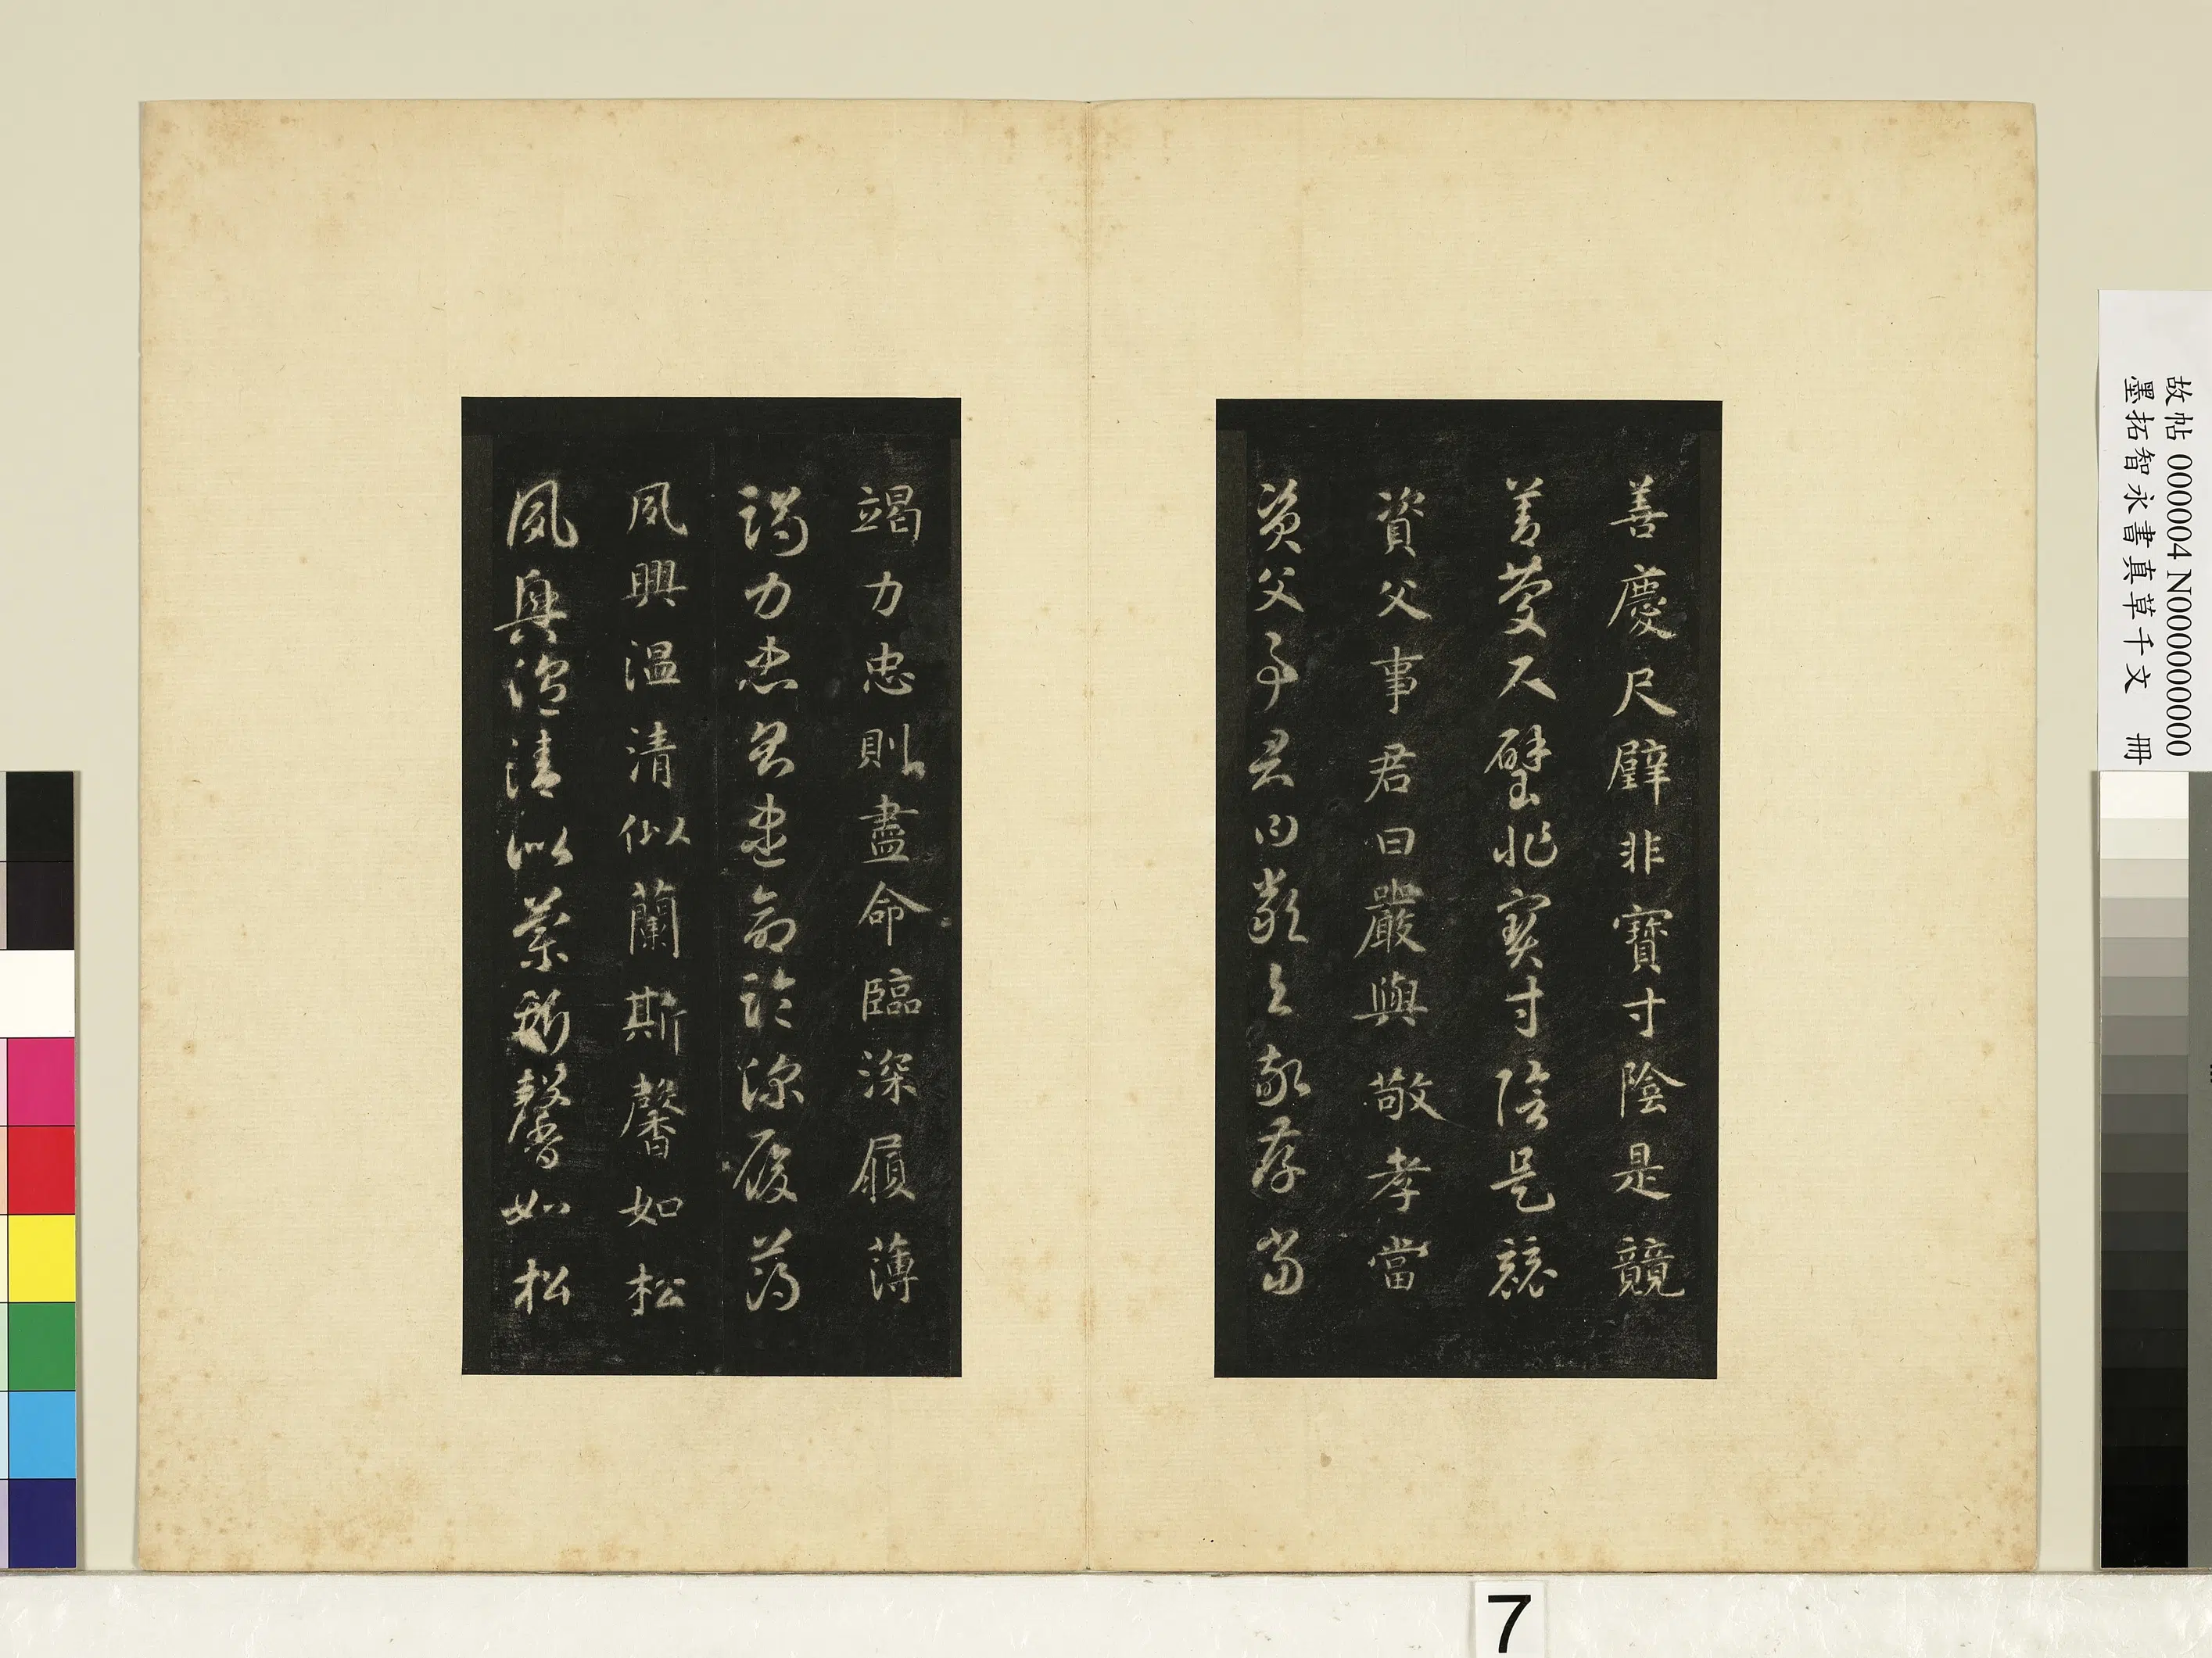 善慶尺璧非寶寸陰是競
善慶尺璧非寶寸陰是競
資父事君曰嚴與敬孝當
資父事君曰嚴與敬孝當
竭力忠則盡命臨深履薄
竭力忠則盡命臨深履薄
夙興溫清似蘭斯馨如松
夙興溫清似蘭斯馨如松
故帖 000004 N000000000
墨拓智永書真草千文 冊
7